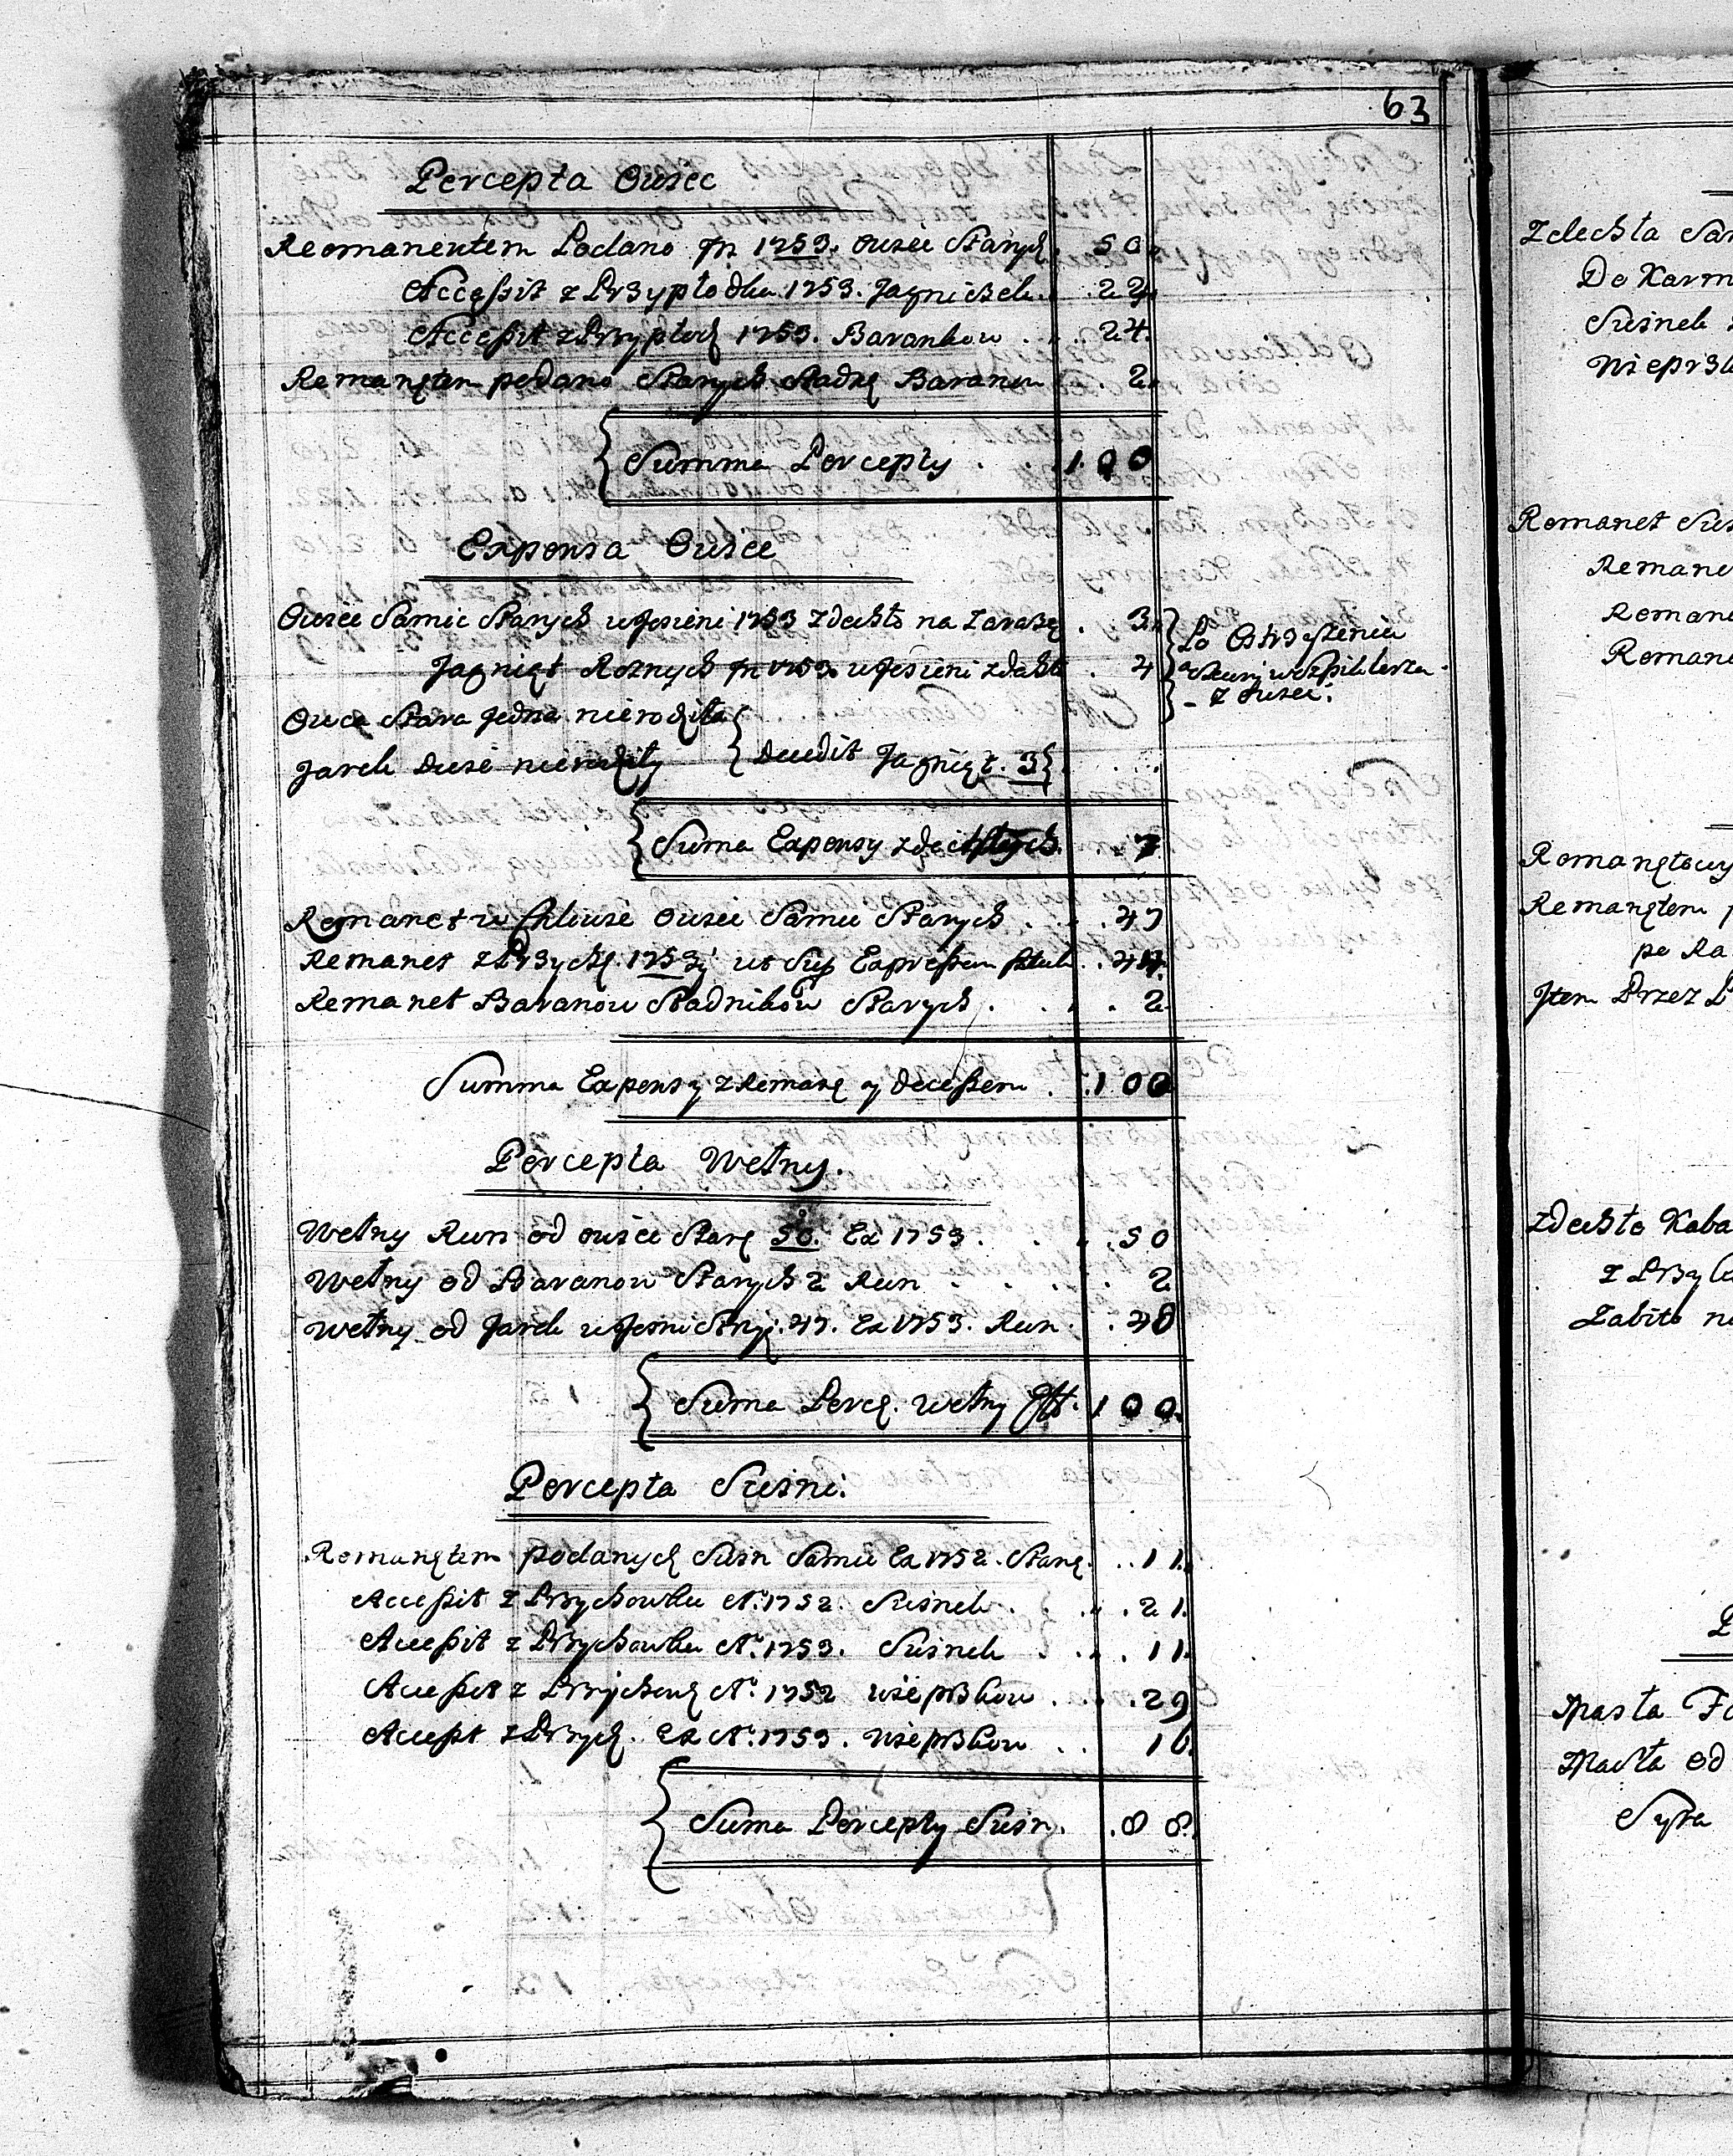 63
Percepta Owiec
Remanentem Podano pr 1753. owiec Starych . 50.
Accessit z Przypłodku 1753. Jagniczek . . 22.
Accessit z Przypłod 1753. Barankow . . . 24.
Remanętem podano Starych Stadnę Baranow . 2.
Summa Percepty . . 100
Expensa Owiec
Owiec Samic Starych w Jesieni 1753 zdechło na Zarazę . 3.
Jagniąt Roznych pr 1753. w Jesieni zdechło . 4
Po Ostrzężeniu
Skury w Szpiklerzu
z owiec.
Owca Stara Jedna nierodziła
Jarek Dwie nierodziły Decedit Jagniąt. 3
Suma Expensy zdechłych . 7
Remanet w Chliwie Owiec Samic Starych . . . 47
Remanet z Przych. 1753 ut Sup Expressum sztuk . . 44.
Remanet Baranow Stadnikow Starych . . . . 2.
Summa Expensy z Remanę y Decessem . . 100
Percepta Wełny.
Wełny Run od owiec Starę 50. Ex 1753 . . . . 50
Wełny od Baranow Starych 2 Run . . . . 2
Wełny od Jarek w Jesieni Strzy. 47. Ex 1753. Run . . 48
Suma Percę. Wełny Eft. 100.
Percepta Swini.
Remanętem podanych Swin Samic Ex 1752. Starę. . . 11.
Accessit z Przychowku Ao. 1752. Swinek . . . . 21.
Accessit z Przychowku Ao. 1753. Swinek . . . . 11.
Accessit z Przychowę Ao. 1752 wieprzkow . . . . 29
Accesst z Przych. Ex Ao. 1753. wieprzkow . . 16.
Suma Percepty Swin. . 88.
Zdechła
Do Karm
Swinek
Nieprze
Remanet
Remane
Remane
Remane
Remanętowy
Remanętem
po Ra
Item Przez
Zdechło Kaba
z Przy
Zabito na
Masła
Masła od
Syra